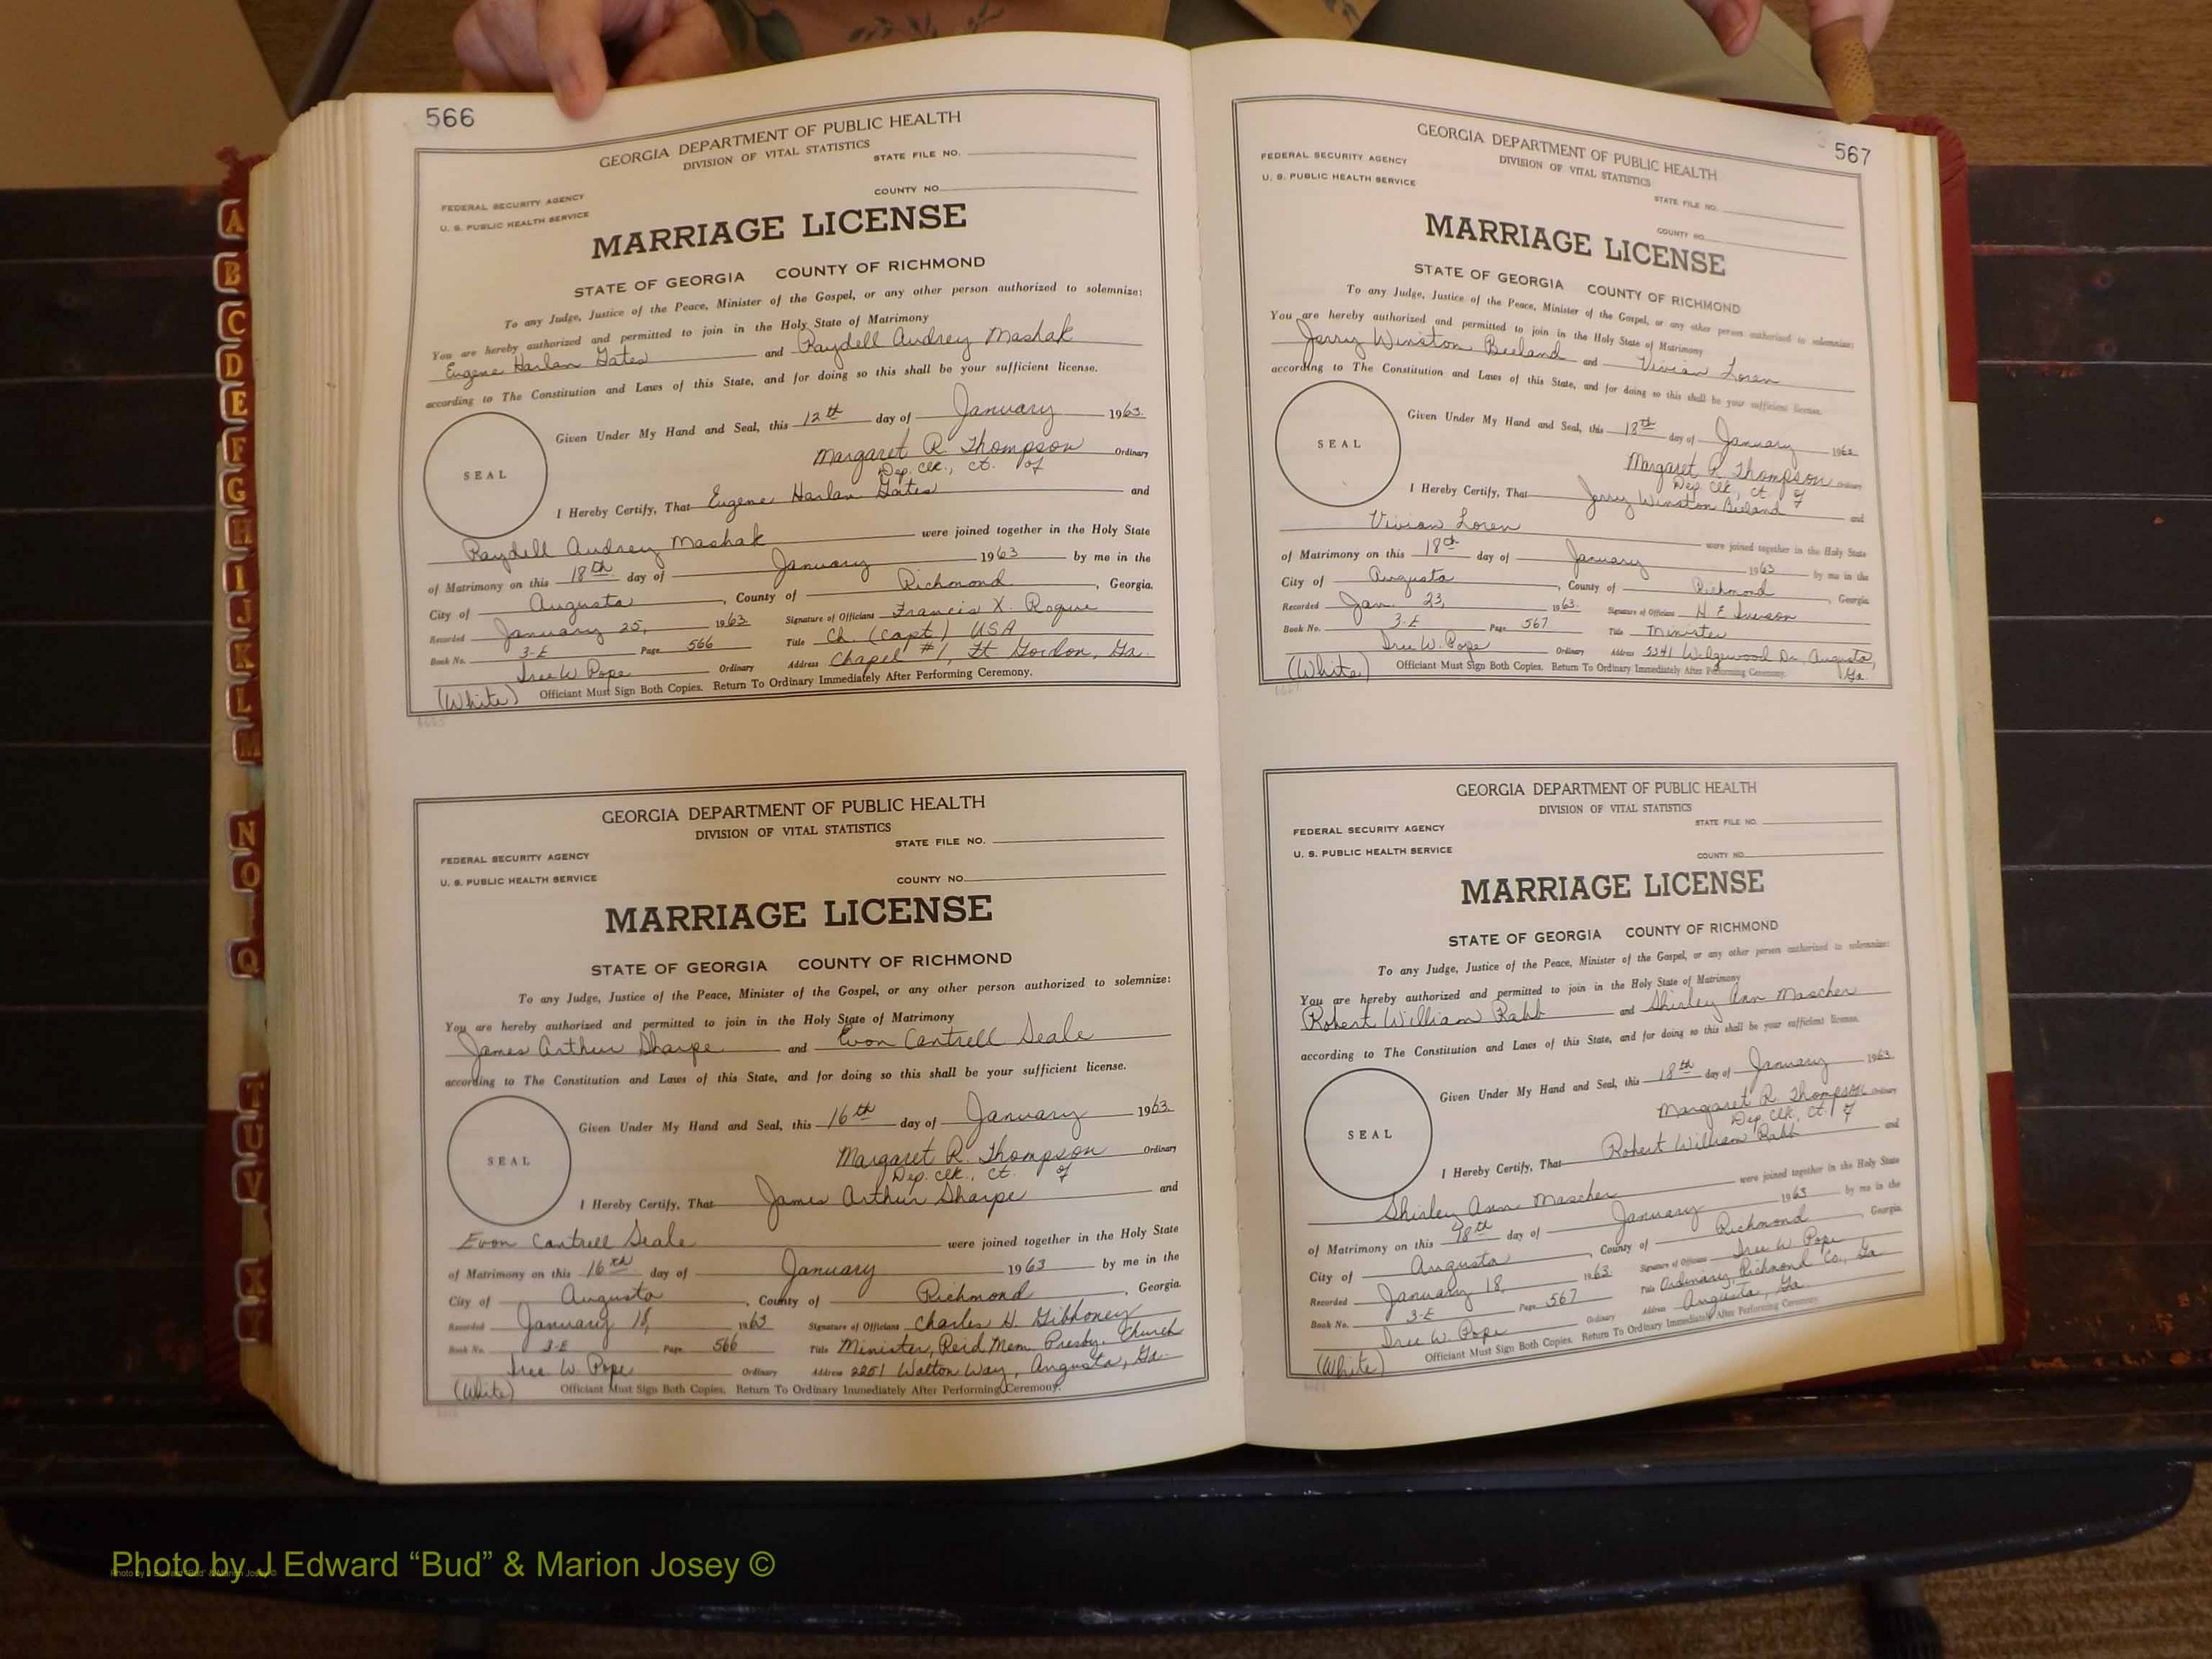 566
GEORGIA DEPARTMENT OF PUBLIC HEALTH
DIVISION OF VITAL STATISTICS
STATE FILE NO.
COUNTY NO.
FEDERAL SECURITY AGENCY
U. S. PUBLIC HEALTH SERVICE
MARRIAGE LICENSE
STATE OF GEORGIA COUNTY OF RICHMOND
To any Judge, Justice of the Peace, Minister of the Gospel, or any other person authorized to solemnize:
You are hereby authorized and permitted to join in the Holy State of Matrimony
Eugene Harlan Gates and Raydell Audrey Mashak
according to The Constitution and Laws of this State, and for doing so this shall be your sufficient license.
Given Under My Hand and Seal, this 12th day of January 1963
Margaret R. Thompson Ordinary
Dep. clk., ct. of
SEAL
I Hereby Certify, That Eugene Harlan Gates and
Raydell Audrey Mashak were joined together in the Holy State
of Matrimony on this 18th day of January 1963 by me in the
City of Augusta, County of Richmond, Georgia.
Recorded January 25, 1963 Signature of Officiant Francis X. Roquie
Book No. 3-E Page 566 Title Ch. (Capt) USA
Iree W. Pope Ordinary Address Chapel #1, Ft Gordon, Ga.
(White) Officiant Must Sign Both Copies. Return To Ordinary Immediately After Performing Ceremony.
GEORGIA DEPARTMENT OF PUBLIC HEALTH
DIVISION OF VITAL STATISTICS
STATE FILE NO.
FEDERAL SECURITY AGENCY
U. S. PUBLIC HEALTH SERVICE
COUNTY NO.
MARRIAGE LICENSE
STATE OF GEORGIA COUNTY OF RICHMOND
To any Judge, Justice of the Peace, Minister of the Gospel, or any other person authorized to solemnize:
You are hereby authorized and permitted to join in the Holy State of Matrimony
James Arthur Sharpe and Evon Cantrell Seale
according to The Constitution and Laws of this State, and for doing so this shall be your sufficient license.
Given Under My Hand and Seal, this 16th day of January 1963
Margaret R. Thompson Ordinary
Dep. clk., ct. of
SEAL
I Hereby Certify, That James Arthur Sharpe and
Evon Cantrell Seale were joined together in the Holy State
of Matrimony on this 16th day of January 1963 by me in the
City of Augusta, County of Richmond, Georgia.
Recorded January 18, 1963 Signature of Officiant Charles H. Gibboney
Book No. 3-E Page 566 Title Minister, Reid Mem. Presby. Church
Iree W. Pope Ordinary Address 2251 Walton Way, Augusta, Ga.
(White) Officiant Must Sign Both Copies. Return To Ordinary Immediately After Performing Ceremony.
567
GEORGIA DEPARTMENT OF PUBLIC HEALTH
DIVISION OF VITAL STATISTICS
FEDERAL SECURITY AGENCY
U. S. PUBLIC HEALTH SERVICE
STATE FILE NO.
COUNTY NO.
MARRIAGE LICENSE
STATE OF GEORGIA COUNTY OF RICHMOND
To any Judge, Justice of the Peace, Minister of the Gospel, or any other person authorized to solemnize:
You are hereby authorized and permitted to join in the Holy State of Matrimony
Jerry Winston Beeland and Vivian Loren
according to The Constitution and Laws of this State, and for doing so this shall be your sufficient license.
Given Under My Hand and Seal, this 18th day of January 1963
Margaret R. Thompson Ordinary
Dep. clk., ct. of
SEAL
I Hereby Certify, That Jerry Winston Beeland and
Vivian Loren were joined together in the Holy State
of Matrimony on this 18th day of January 1963 by me in the
City of Augusta, County of Richmond, Georgia
Recorded Jan. 23, 1963 Signature of Officiant H. E Iverson
Book No. 3-E Page 567 Title Minister
Iree W. Pope Ordinary Address 3341 Wedgewood Dr., Augusta, Ga.
(White) Officiant Must Sign Both Copies. Return To Ordinary Immediately After Performing Ceremony.
GEORGIA DEPARTMENT OF PUBLIC HEALTH
DIVISION OF VITAL STATISTICS
STATE FILE NO.
FEDERAL SECURITY AGENCY
U. S. PUBLIC HEALTH SERVICE
COUNTY NO.
MARRIAGE LICENSE
STATE OF GEORGIA COUNTY OF RICHMOND
To any Judge, Justice of the Peace, Minister of the Gospel, or any other person authorized to solemnize:
You are hereby authorized and permitted to join in the Holy State of Matrimony
Robert William Rabb and Shirley Ann Mascher
according to The Constitution and Laws of this State, and for doing so this shall be your sufficient license.
Given Under My Hand and Seal, this 18th day of January 1963
Margaret R. Thompson Ordinary
Dep. clk, ct. of
SEAL
I Hereby Certify, That Robert William Rabb and
Shirley Ann Mascher were joined together in the Holy State
of Matrimony on this 18th day of January 1963 by me in the
City of Augusta, County of Richmond, Georgia
Recorded January 18, 1963 Signature of Officiant Iree W. Pope
Book No. 3-E Page 567 Title Ordinary, Richmond Co., Ga
Iree W. Pope Ordinary Address Augusta, Ga
(White) Officiant Must Sign Both Copies. Return To Ordinary Immediately After Performing Ceremony
A
B
C
D
E
F
G
H
I
J
K
L
M
N
O
Q
T
U
V
X
Y
Photo by J Edward “Bud” & Marion Josey ©
Photo by J Edward “Bud” & Marion Josey ©